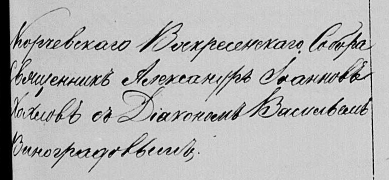 Корчевского Воскресенского Собора
Священникъ Александръ Іоанновъ
Хохловъ съ Діакономъ Василіемъ
Виноградовымъ.